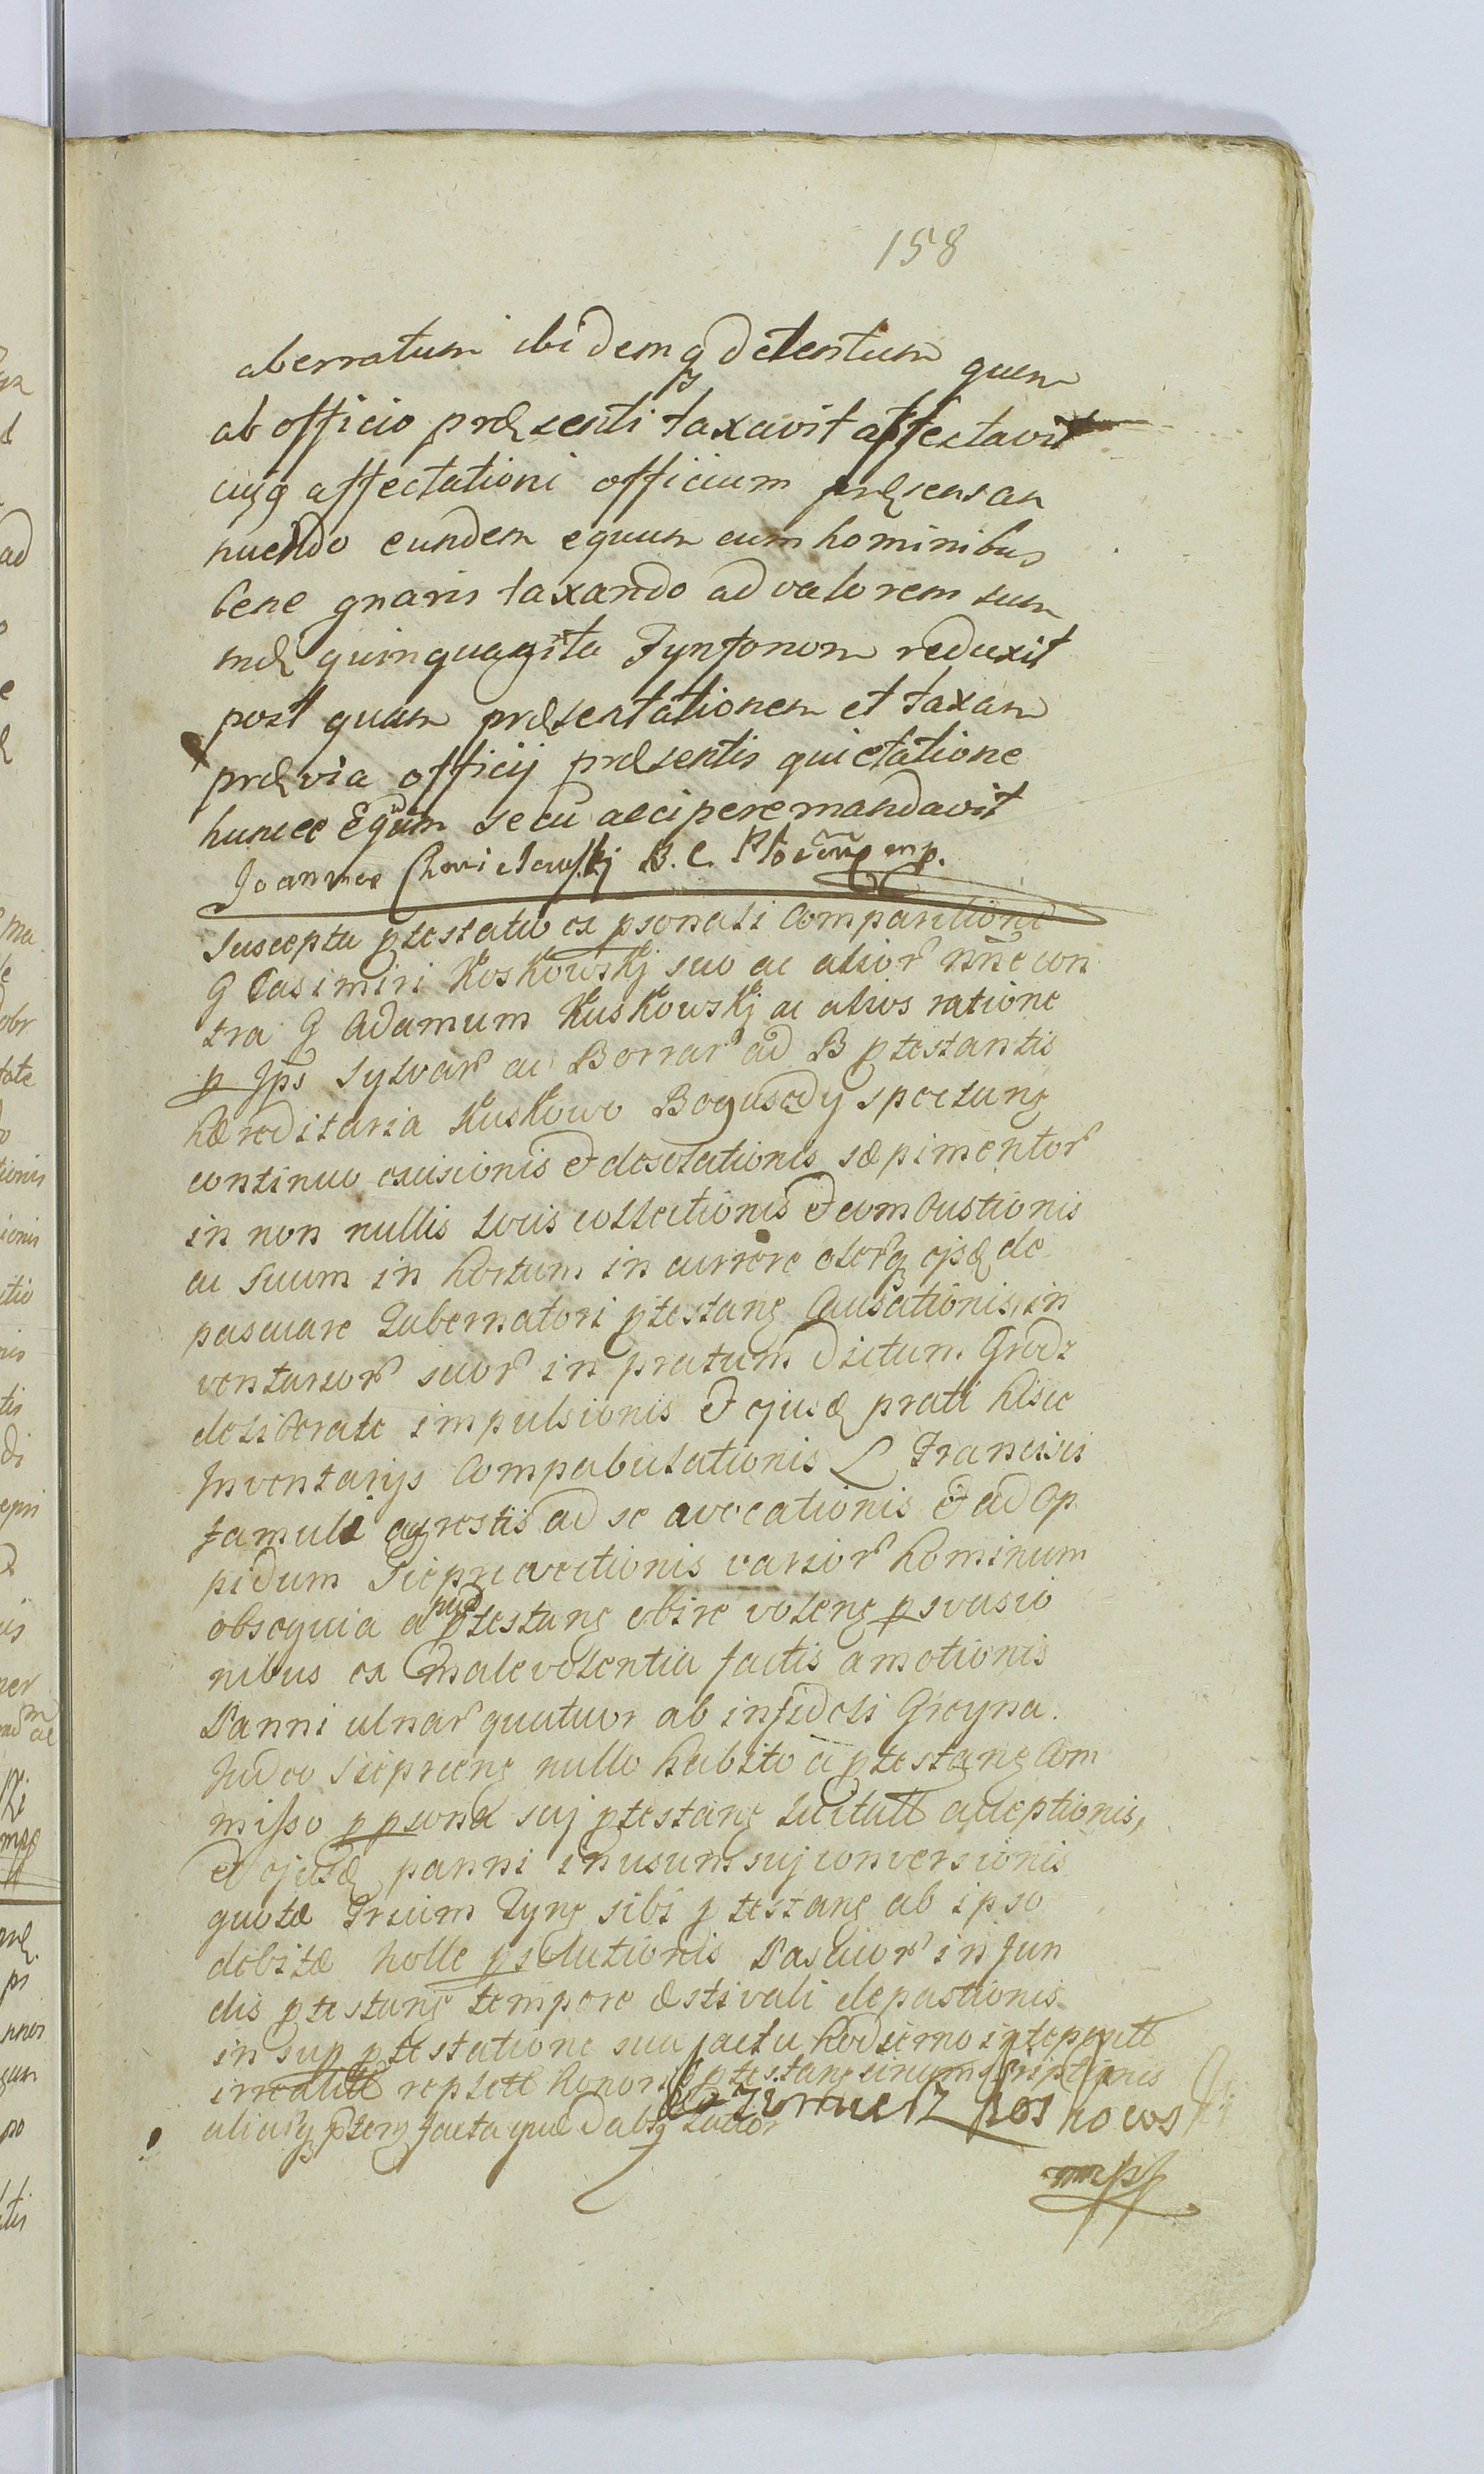 158
aberratum ibidemq detentum quem
ab officio præsenti taxavit affectavit
cujq affectationi officium præsens an
nuendo eundem equum cum hominibus
bene gnaris taxando ad valorem sum
mæ quinquagita Tynfonom reduxit
post quam præsentationem et taxam
prævia officij præsentis quietatione
huncce Equm secu accipere mandavit
Joannes Chmielewskj B. C. mp.
Suscepta ptestatio ex psonali Comparitione
G Casimiri Koskowskj suo ac alior nne con
tra G Adamum Kuskowskj ac alios ratione
p Jps Sylvar ac Borrar ad B ptestantis
hæreditaria Kuskowo Bogusody spectang
continuo excisionis et desolationis sæpimentor
in non nullis locis collectionis et combustionis
ac suum in hortum in currere olerq ejsd de
pascuare Gubernatori ptestang Causationis, in
ventarior suor in pratum dictum Grodz
deliberate impulsionis et ejusd prati hisce
Inventarijs Compabulationis L Francisci
famuli agrestis ad se avocationis et ad op
pidum Sieprc avectionis varior hominum
obsequia apud ptestang obire voleng psvasio
nibus ex malevolentia factis amotionis
Panni ulnar quatuor ab infideli Gieyna
Judeo Sieprceng nullo habito a ptestang Com
misso p psona suj ptestang acceptionis,
et ejusd panni in usum suj conversionis
quotæ trium Tyng sibi ptestang ab ipso
debitæ nolle psolutionis Pascuor in fun
dis ptestang tempore æstivali depastionis
in sup ptestatione sua factu hodierno
repsett honoris ptestang
aliarq facta quæ dabq
mpp